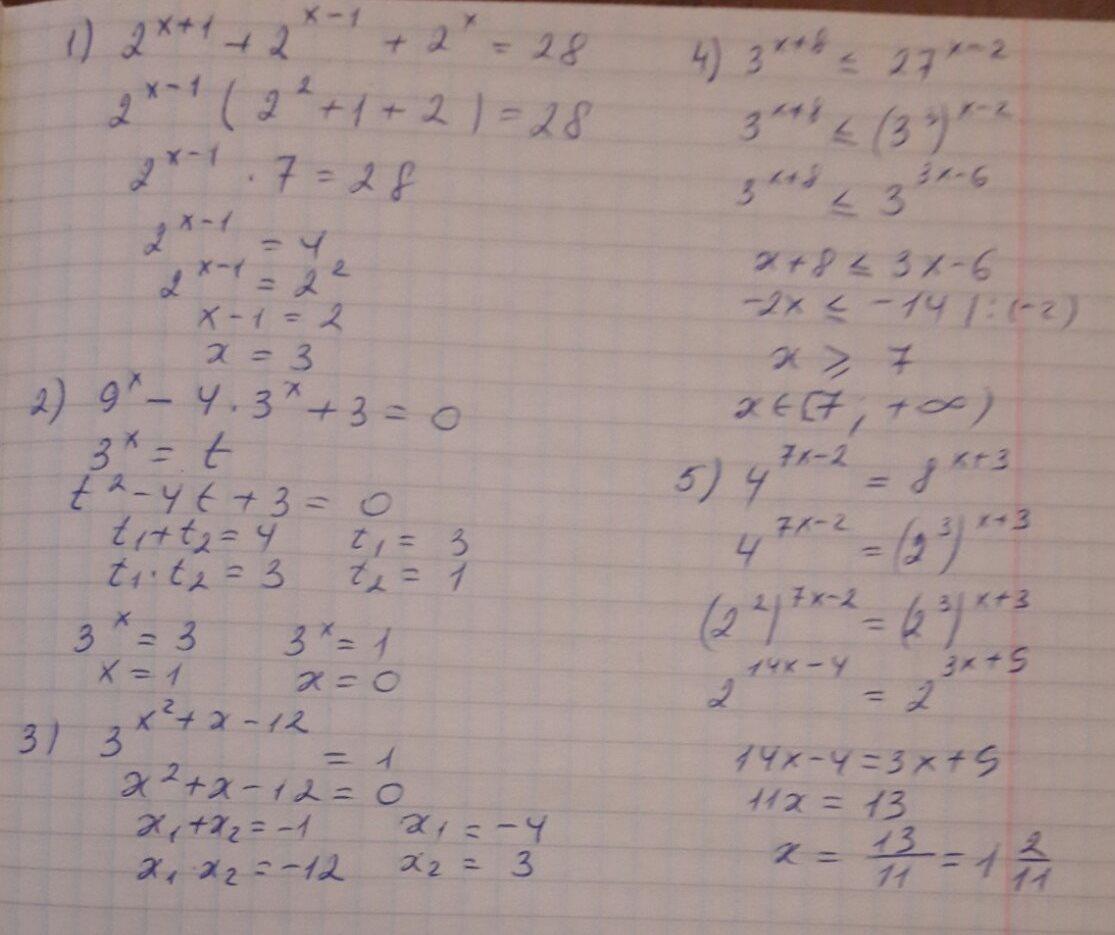 1) 2^{x+1} + 2^{x-1} + 2^x = 28
2^{x-1} (2^2 + 1 + 2) = 28
2^{x-1} · 7 = 28
2^{x-1} = 4
2^{x-1} = 2^2
x - 1 = 2
x = 3
2) 9^x - 4 · 3^x + 3 = 0
3^x = t
t^2 - 4t + 3 = 0
t₁ + t₂ = 4 t₁ = 3
t₁ · t₂ = 3 t₂ = 1
3^x = 3 3^x = 1
x = 1 x = 0
3) 3^{x^2 + x - 12} = 1
x^2 + x - 12 = 0
x₁ + x₂ = -1 x₁ = -4
x₁ · x₂ = -12 x₂ = 3
4) 3^{x+8} ≤ 27^{x-2}
3^{x+8} ≤ (3^3)^{x-2}
3^{x+8} ≤ 3^{3x-6}
x + 8 ≤ 3x - 6
-2x ≤ -14 | : (-2)
x ≥ 7
x ∈ [7; +∞)
5) 4^{7x-2} = 8^{x+3}
4^{7x-2} = (2^3)^{x+3}
(2^2)^{7x-2} = (2^3)^{x+3}
2^{14x-4} = 2^{3x+9}
14x - 4 = 3x + 9
11x = 13
x = 13/11 = 1 2/11